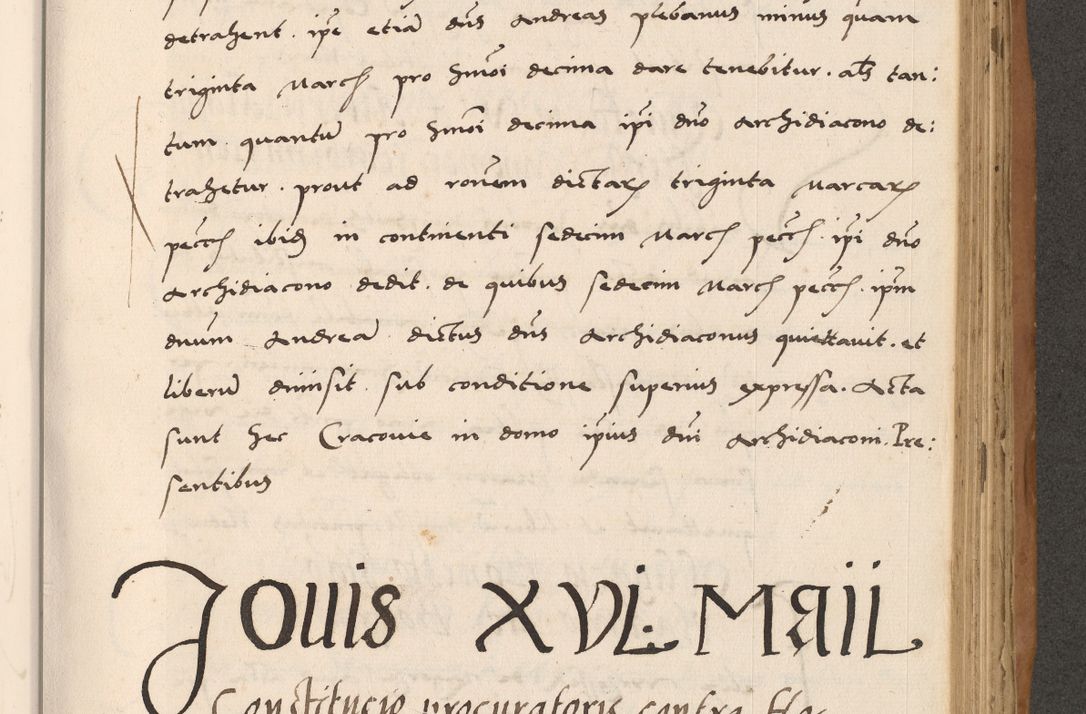 detrahent. ip̃e etiã dñs Andreas plebanus minus quam
triginta March pro hmõi decima dare tenebitur. als tan:
tum quantũ pro hmõi decima ip̃i dño Archidiacono de:
trahetur. prout ad rõnem dictarꝝ triginta Marcarꝝ
pecch ibidꝫ in continenti sedecim March pecch. ip̃i dño
Archidiacono dedit. de quibus sedecim March pecch. ip̃m
dnum Andreã dictus dñs Archidiaconus quiettauit. et
liberũ dimisit. sub conditione superius expressa. Acta
sunt hec Cracouie in domo ip̃ius dñi Archidiaconi. Pre:
sentibus
Jouis XVI. Maii
Constitucio procuratoris contra